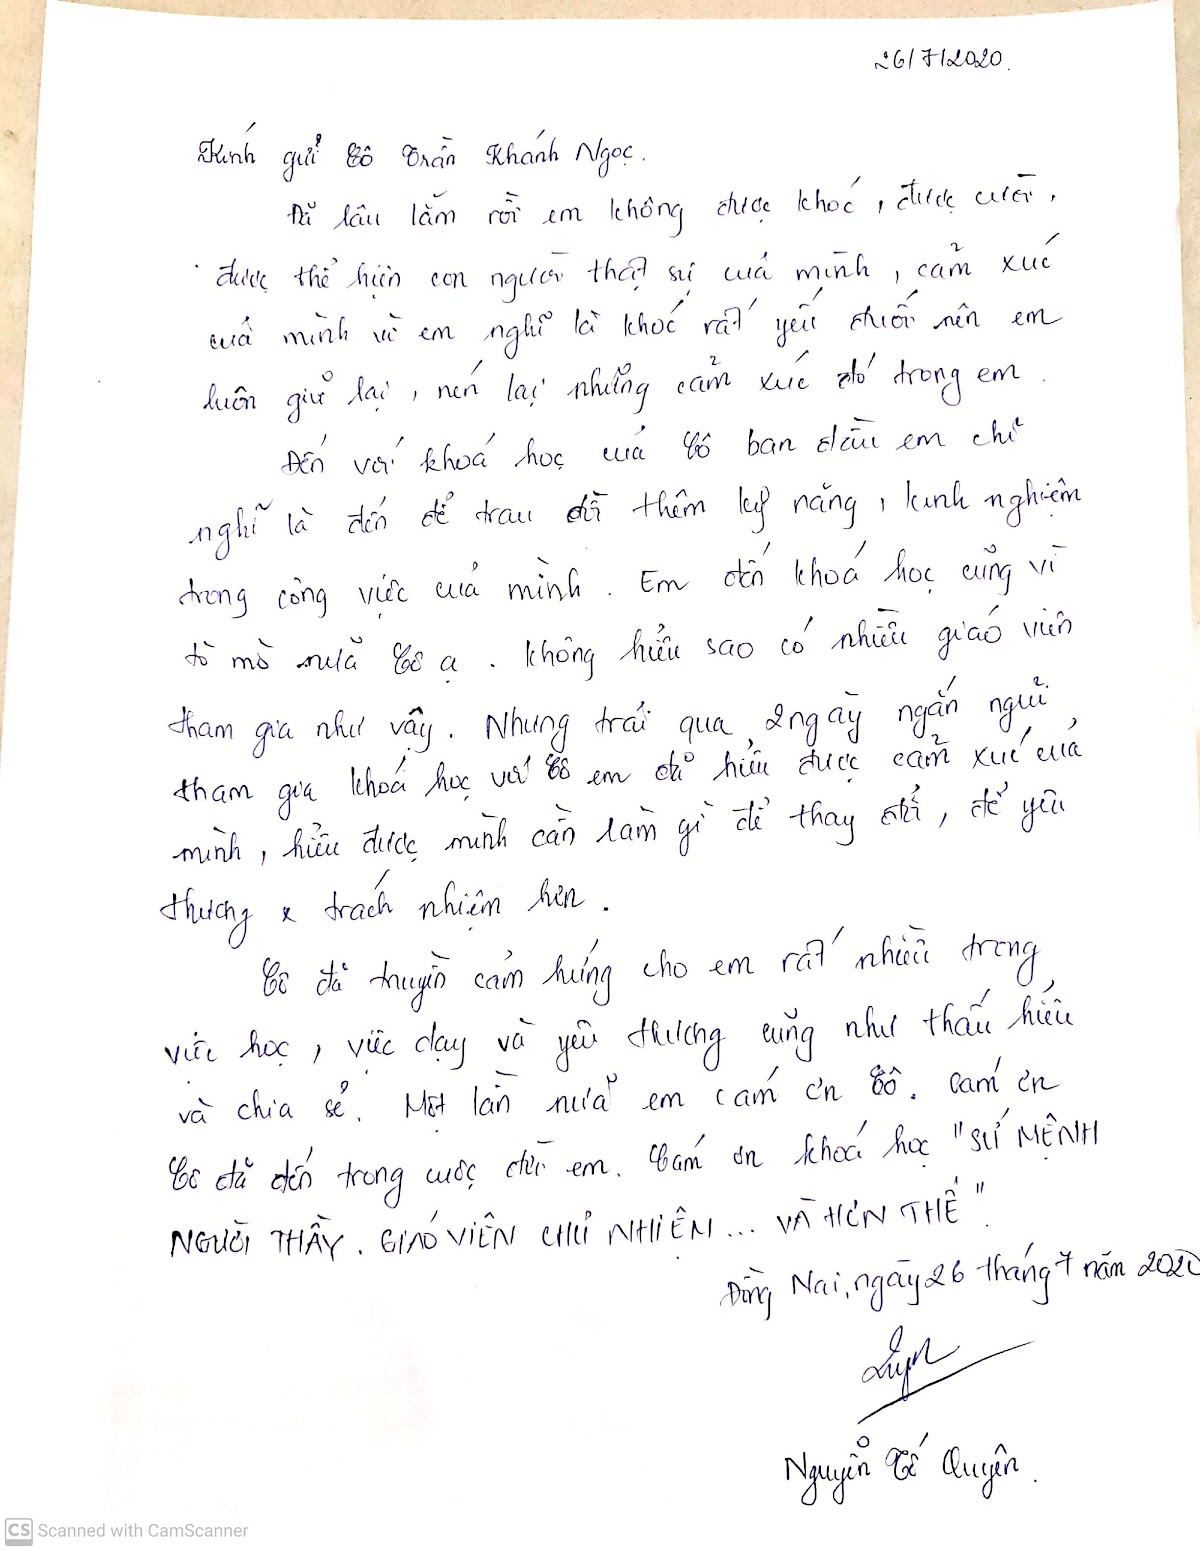 26/7/2020.
Kính gửi Cô Trần Khánh Ngọc.
Đã lâu lắm rồi em không được khóc, được cười,
được thể hiện con người thật sự của mình, cảm xúc
của mình vì em nghĩ là khóc rất yếu đuối nên em
luôn giữ lại, nén lại những cảm xúc đó trong em.
Đến với khoá học của Cô ban đầu em chỉ
nghĩ là đến để trau dồi thêm kỹ năng, kinh nghiệm
trong công việc của mình. Em đến khoá học cũng vì
tò mò nữa Cô ạ. Không hiểu sao có nhiều giáo viên
tham gia như vậy. Nhưng trải qua 2 ngày ngắn ngủi,
tham gia khoá học với Cô em đã hiểu được cảm xúc của
mình, hiểu được mình cần làm gì để thay đổi, để yêu
thương & trách nhiệm hơn.
Cô đã truyền cảm hứng cho em rất nhiều trong
việc học, việc dạy và yêu thương cũng như thấu hiểu
và chia sẻ. Một lần nữa em cảm ơn Cô. Cảm ơn
Cô đã đến trong cuộc đời em. Cảm ơn khoá học "SỨ MỆNH
NGƯỜI THẦY. GIÁO VIÊN CHỦ NHIỆM... VÀ HƠN THẾ".
Đồng Nai, ngày 26 tháng 7 năm 2020
Nguyễn Tố Quyên.
CS Scanned with CamScanner